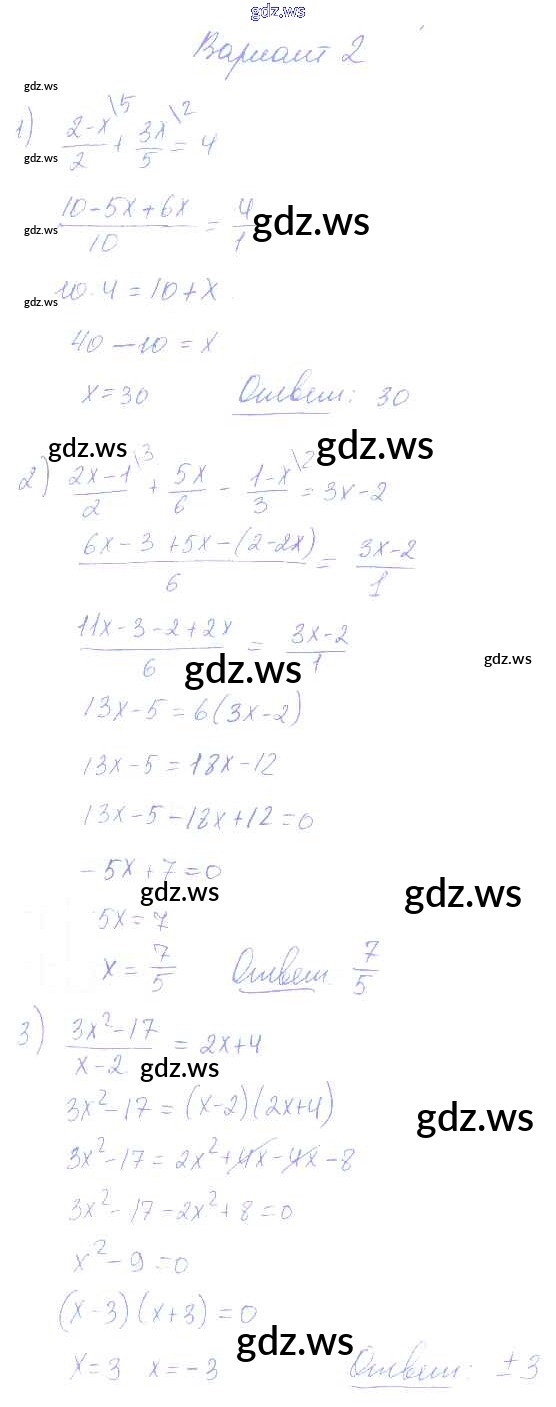 gdz.ws
Вариант 2
gdz.ws
1) (2-x)/2 \5 + 3x/5 \2 = 4
gdz.ws
(10-5x+6x)/10 = 4/1
gdz.ws gdz.ws
10·4 = 10+x
gdz.ws
40-10 = x
x = 30 Ответ: 30
gdz.ws gdz.ws
2) (2x-1)/2 \3 + 5x/6 - (1-x)/3 \2 = 3x-2
(6x-3+5x-(2-2x))/6 = (3x-2)/1
(11x-3-2+2x)/6 = (3x-2)/1
gdz.ws gdz.ws
13x-5 = 6(3x-2)
13x-5 = 18x-12
13x-5-18x+12 = 0
-5x+7 = 0
gdz.ws gdz.ws
5x = 7
x = 7/5 Ответ: 7/5
3) (3x²-17)/(x-2) = 2x+4
gdz.ws
3x²-17 = (x-2)(2x+4)
gdz.ws
3x²-17 = 2x²+4x-4x-8
3x²-17-2x²+8 = 0
x²-9 = 0
(x-3)(x+3) = 0
gdz.ws
x = 3 x = -3 Ответ: ±3